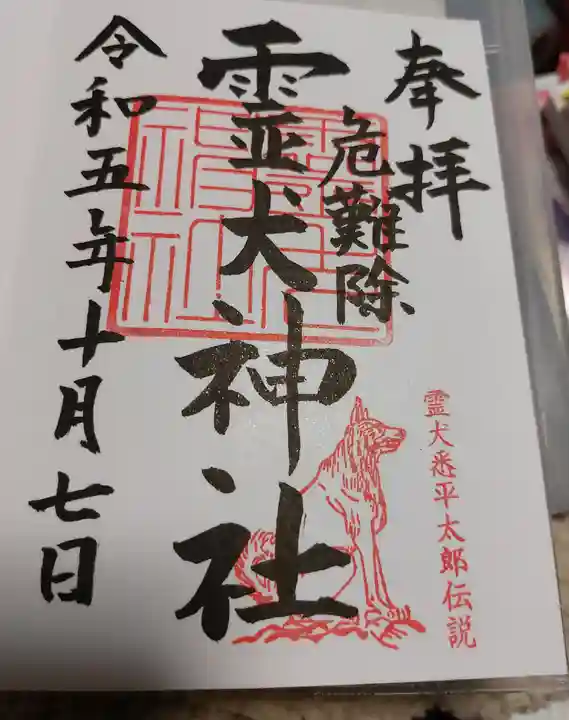 奉拝
危難除、
霊犬神社
令和五年十月七日
霊犬悉平太郎伝説